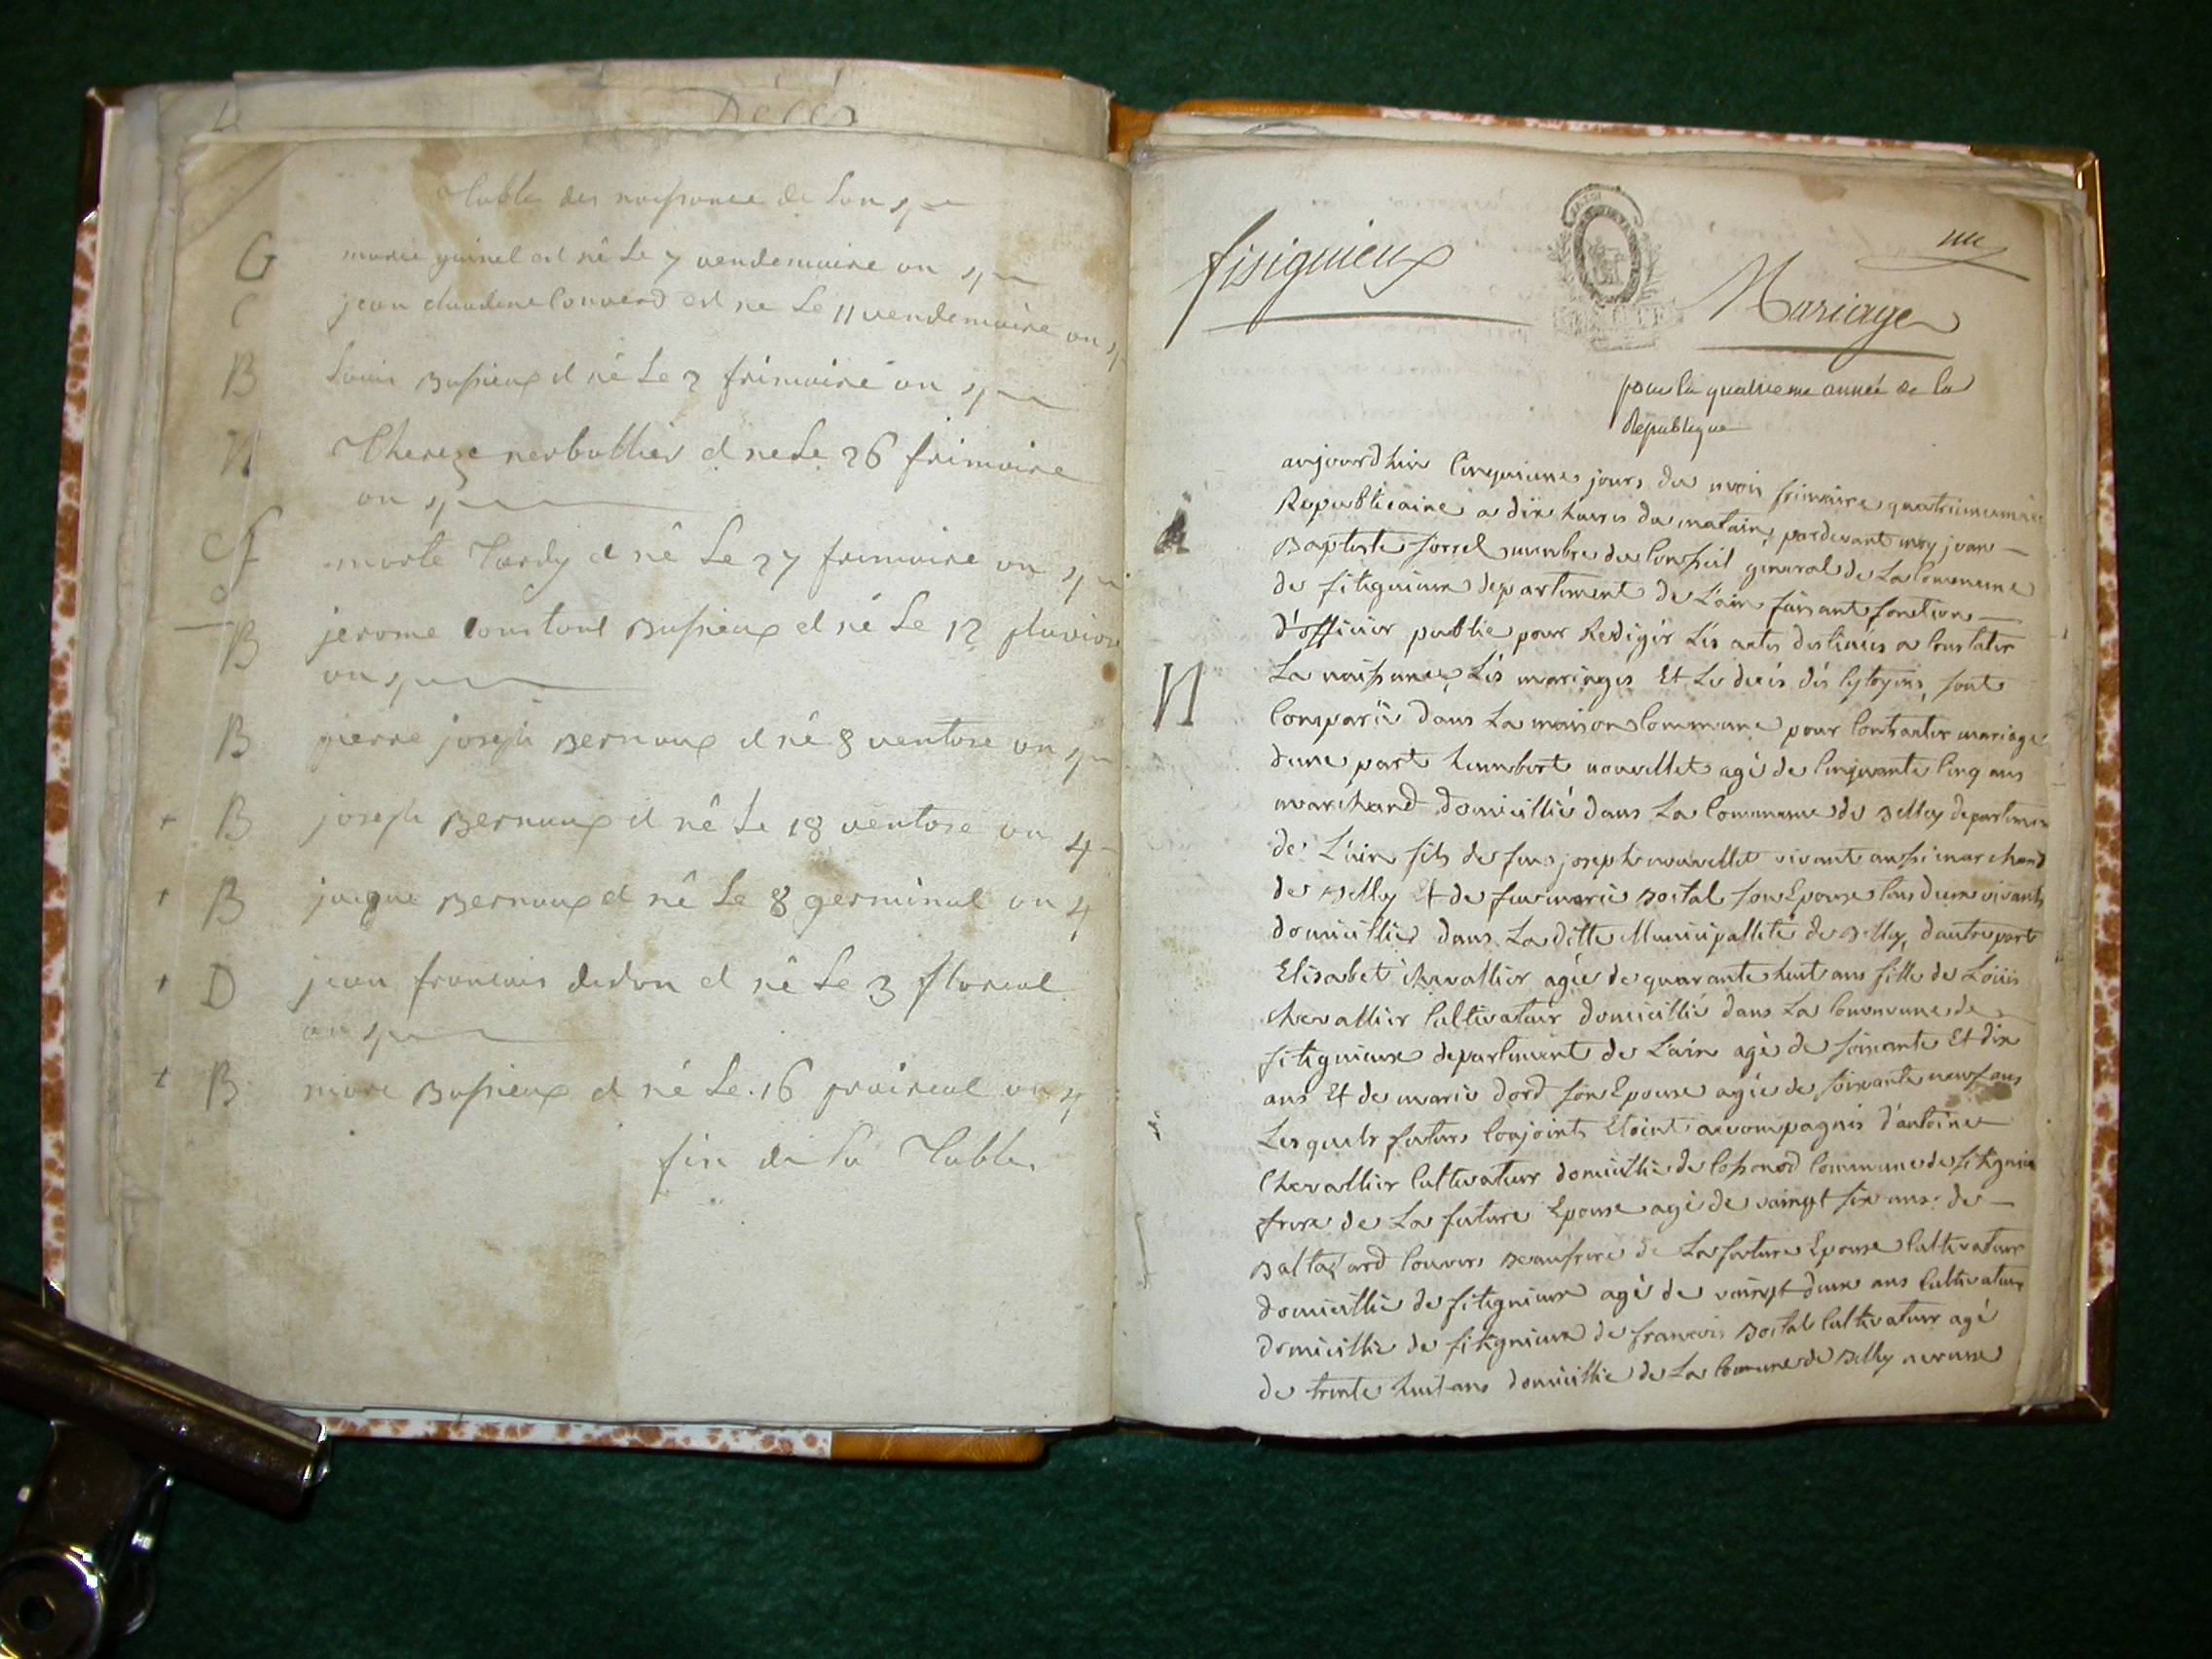 Décés
Table des naissance de Lan 4
G marie guinel est né Le 7 vendemiaire an 4
C jean claudine Convers est né Le 11 vendemiaire an 4
B Louis Bussieux et né Le 2 frimaire an 4
N Therese nerbollier et né Le 26 frimaire
an 4
T marte Tardy et né Le 27 frimaire an 4
B jerome constant Bussieux et né Le 12 pluviose
an 4
B pierre joseph Bernaux et né 8 ventose an 4
+ B joseph Bernaux et né Le 18 ventose an 4
+ B jacque Bernaux et né Le 8 germinal an 4
+ D jean francais didon et né Le 3 floreal
an 4
+ B marie Bussieux et né Le 16 praireal an 4
fin de La Table
fisignieux
Mariage
pour la quatrieme année de la
Republique
aujourdhui Cinquieme jours du mois frimaire quatriemme
Republicaine a dix heures du matain, pardevant moy jean
Baptiste forrel membre du Conseil general de La Commune
de fitignieux departement de L'ain faisant fonction
d'officier public pour Redigér Lés actes destinées a Constater
N La naissance, Lés mariages Et Le decés dés Cytoyens, sont
Comparu dans La maison Commune pour Contracter mariage
dune part humbert nouvellet agé de Cinquante Cinq ans
marchand domicillié dans La Commune de Belley departement
de L'ain fils de feu joseph nouvellet vivant aussi marchand
de Belley Et de feu marie Bostal son Epouse tous deux vivants
domicilliés dans La ditte Municipallité de Belley, dautre part
Elisabet Chevallier agée de quarante huit ans fille de Loüis
Chevallier Cultivateur domicillié dans La Commune de
fitignieux departement de L'ain agé de soixante Et dix
ans Et de marie dord son Epouse agée de soixante neuf ans
Lesquels futurs Conjoints Etoint accompagnés d'antoine
Chevallier Cultivateur domicillié de Commune de fitignieux
frere de La future Epouse agé de vaingt six ans de
Baltazard Convers Beaufrere de La future Epouse Cultivateur
domicillié de fitignieux agé de vaingt deux ans Cultivateur
domicillié de fitignieux de francois Bostal Cultivateur agé
de trente huit ans domicillié de La Commune de Belley